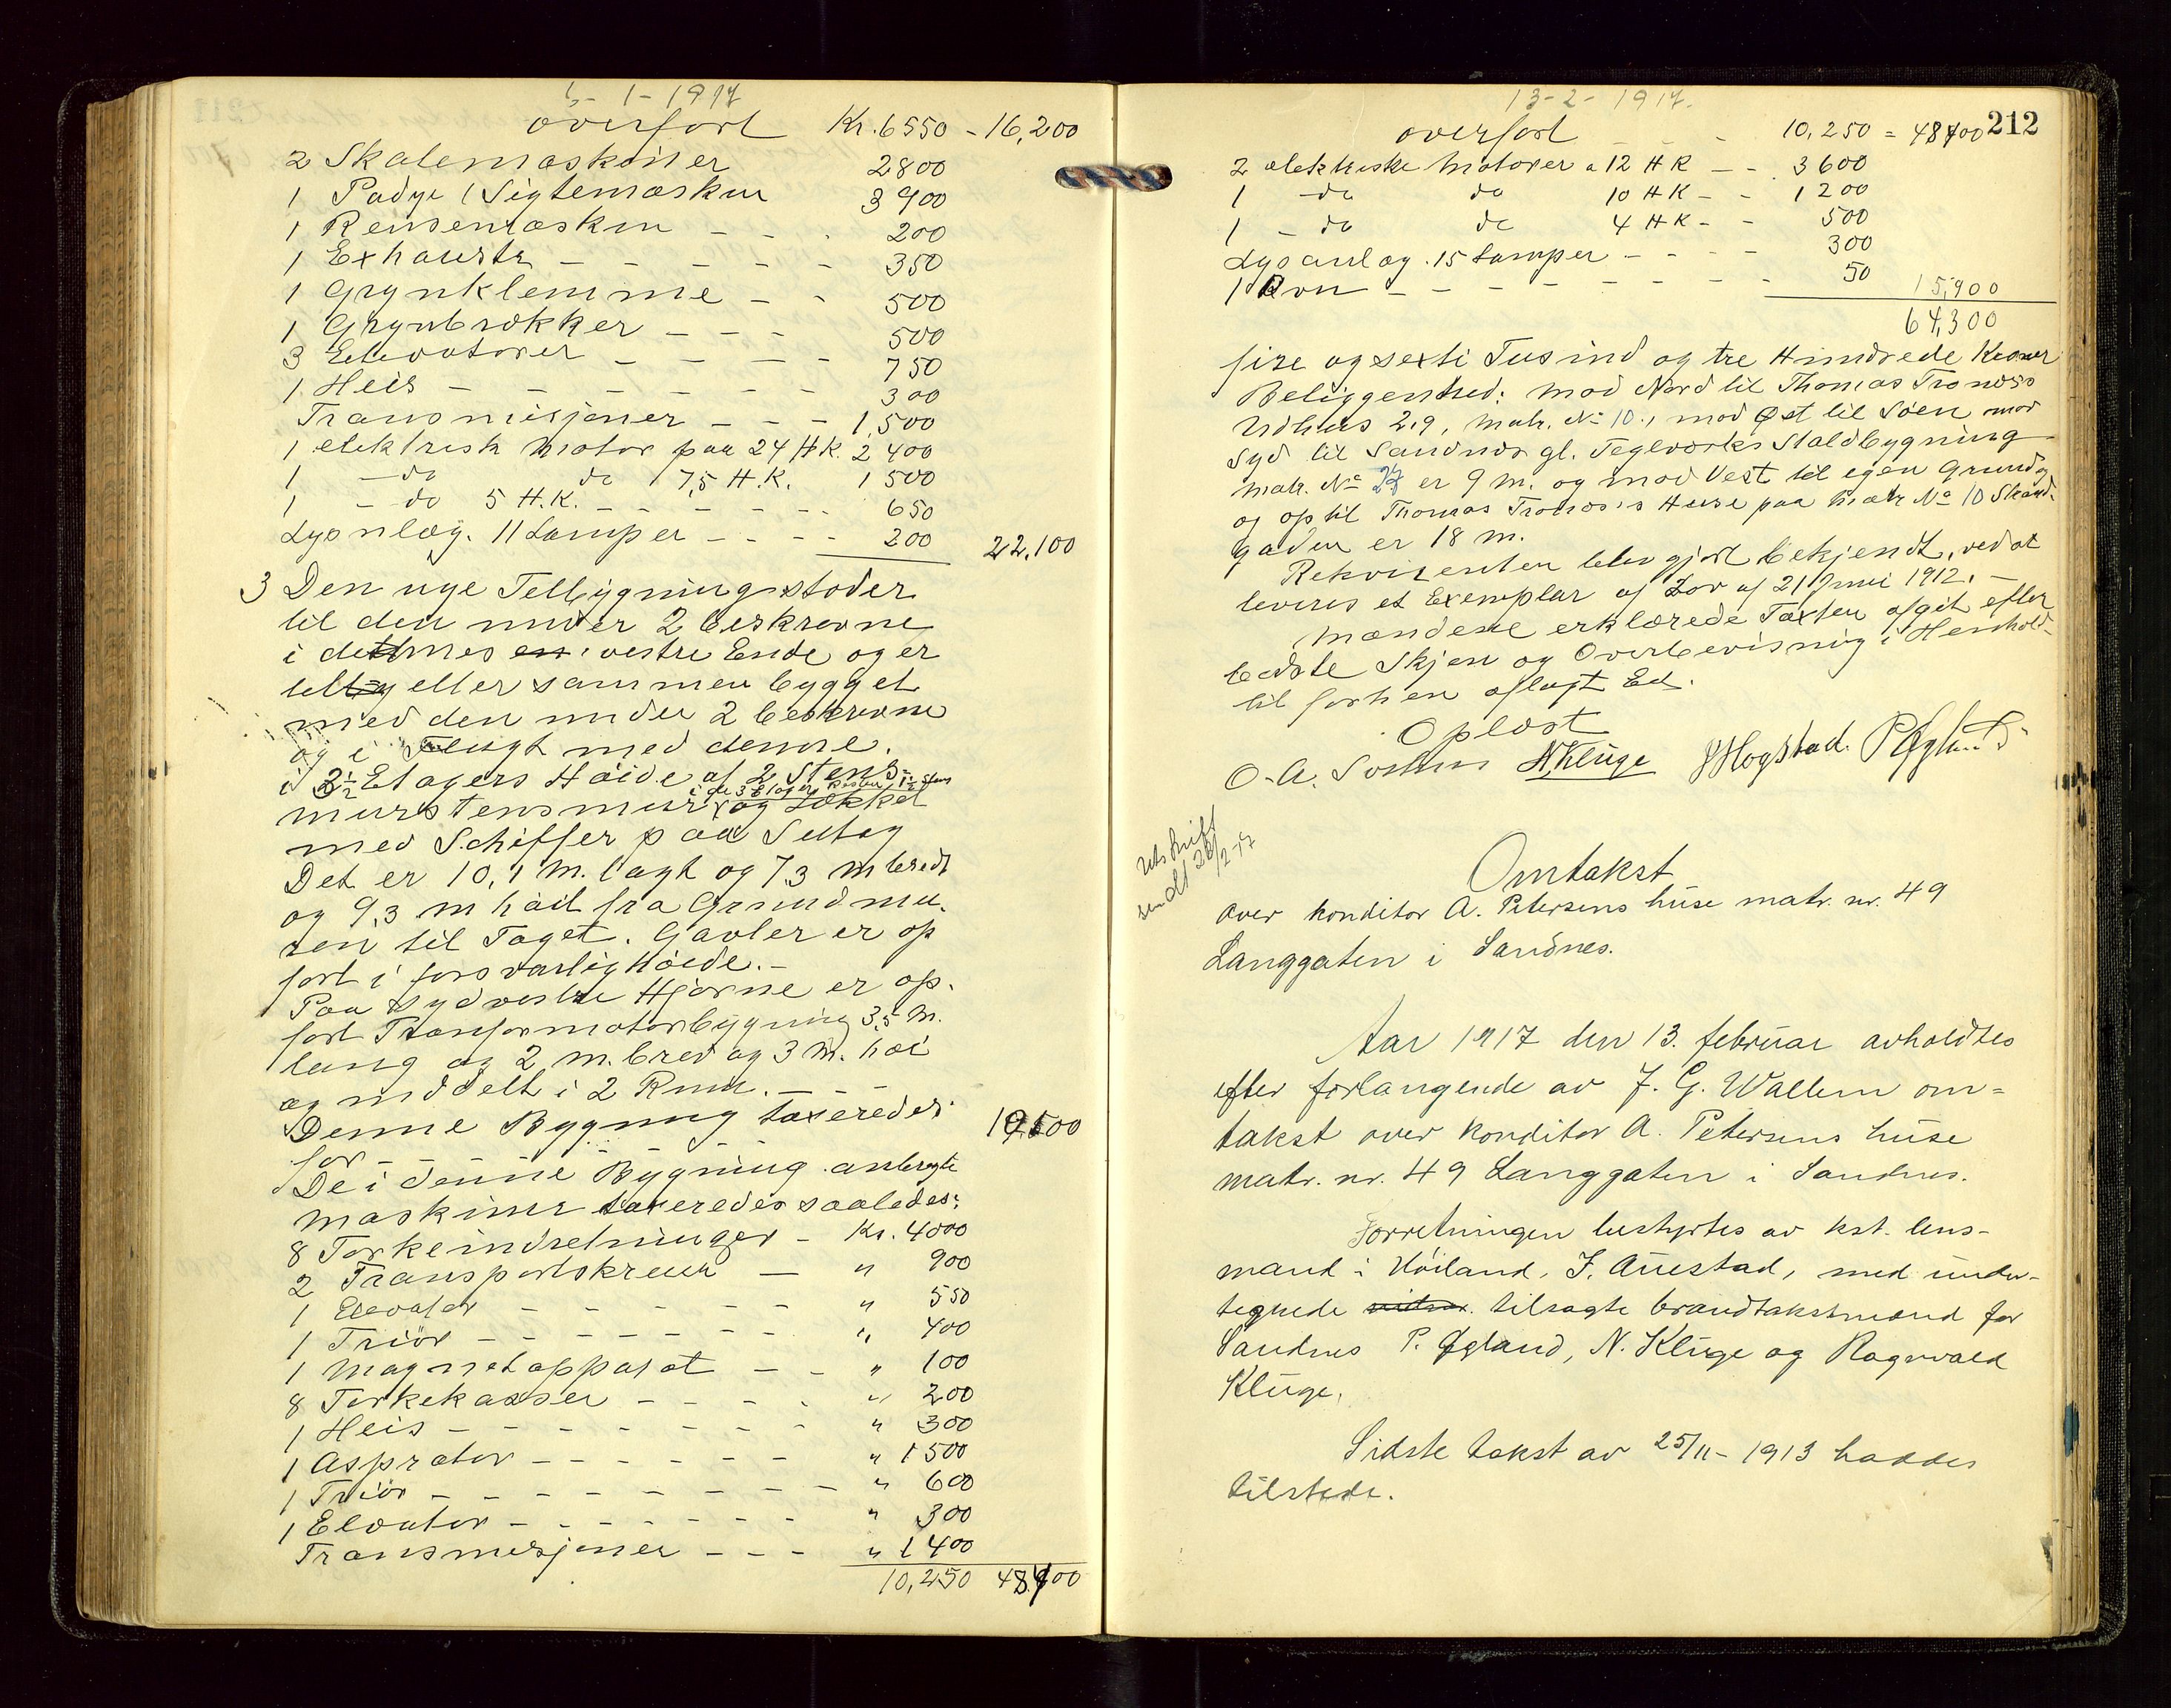 5-1-1917
overført Kr. 6550 - 16,200
2 Skalemaskiner 2800
1 Padye (Sigtemaskin 3900
1 Rensemaskin - - - 200
1 Exhauster - - - - - 350
1 Grynklemme - - 500
1 Grynbrækker - - - 500
3 Elevatorer - - - - 750
1 Heis - - - - - - 300
Transmisjoner - - - 1,500
1 elektrisk motor paa 24 H.K. 2400
1 - do do 7,5 H.K. 1500
1 - do 5 H.K. - - - - - - 650
Lysanlæg. 11 Lamper - - - - 200 22,100
3 Den nye Tilbygning støder
til den under 2 beskrevne
i dennes vestre Ende og er
eller sammenbygget
med den under 2 beskrevne
og i Flugt med denne.
i 3½ Etagers Høide af 2 Stens
i de 3 Etager Resten 1½ Sten
murstensmur og tækket
med Schiffer paa Sutag
Det er 10,1 M. lagt og 7,3 M bredt
og 9,3 m høit fra Grundmu-
ren til Taget. Gavler er op
ført i forsvarlig Høide.-
Paa sydvestre Hjørne er op-
ført Transformatorbygning 3,5 M.
lang og 2 m. bred og 3 M. høi
og inddelt i 2 Rum. - - -
Denne Bygning taxeredes
for - - - - 10,100
De i denne Bygning anbragte
maskiner taxeredes saaledes:
8 Torkeindretninger - Kr. 4000
2 Transportskruer - " 900
1 Elevator - - - - - - " 550
1 Triør - - - - - - - " 400
1 Magnetapparat - - " 100
8 Torkekasser - - - - " 200
1 Heis - - - - - - - " 300
1 Asprator - - - - - - " 1500
1 Triör - - - - - - - - " 600
1 Elevator - - - - - - " 300
Transmisjoner - - - " 1400
10,250 48,400
13-2-1917.
212
overført - - - 10,250 = 48400
2 elektriske Motorer a 12 HK - - 3600
1 - do do 10 HK - - 1200
1 - do do 4 HK - - 500
Lysanlæg. 15 Lamper - - - - 300
1 Ovn - - - - - - - 50 15,900
64,300
fire og sexti Tusind og tre Hundrede Kroner
Beliggenhed: mod Nord til Thomas Tronæs's
Udhus 2.9, matr. No 10., mod Øst til Søen mod
Syd til Sandnæs gl. Teglværks Staldbygning
matr. No er 9 m. og mod Vest til egen Grund og
og op til Thomas Tronæs's Huse paa Matr No 10 Strand-
gaden er 18 m.
Rekvirenten blev gjort bekjendt, ved at
leveres et Exemplar af Lov af 21 Juni 1912. -
Mændene erklærede Taxten afgit efter
bedste Skjøn og Overbevisning i Henhold
til forhen aflagt Ed.
Oplæst
O. A. N. Kluge J Hogstad. P Øgland
Utskrift
sendt 20/2-17
Omtakst
over konditor A. Petersens huse matr. nr. 49
Langgaten i Sandnes.
Aar 1917 den 13. februar avholdtes
efter forlangende av J. G. Wallem om=
takst over konditor A. Petersens huse
matr. nr. 49 Langgaten i Sandnes.
Forretningen bestyrtes av kst. lens-
mand i Høiland, J. Auestad, med under-
tegnede tilsagte brandtakstmænd for
Sandnes P. Øgland, N. Kluge og Ragnvald
Kluge.
Sidste takst av 25/11-1913 haddes
tilstede.